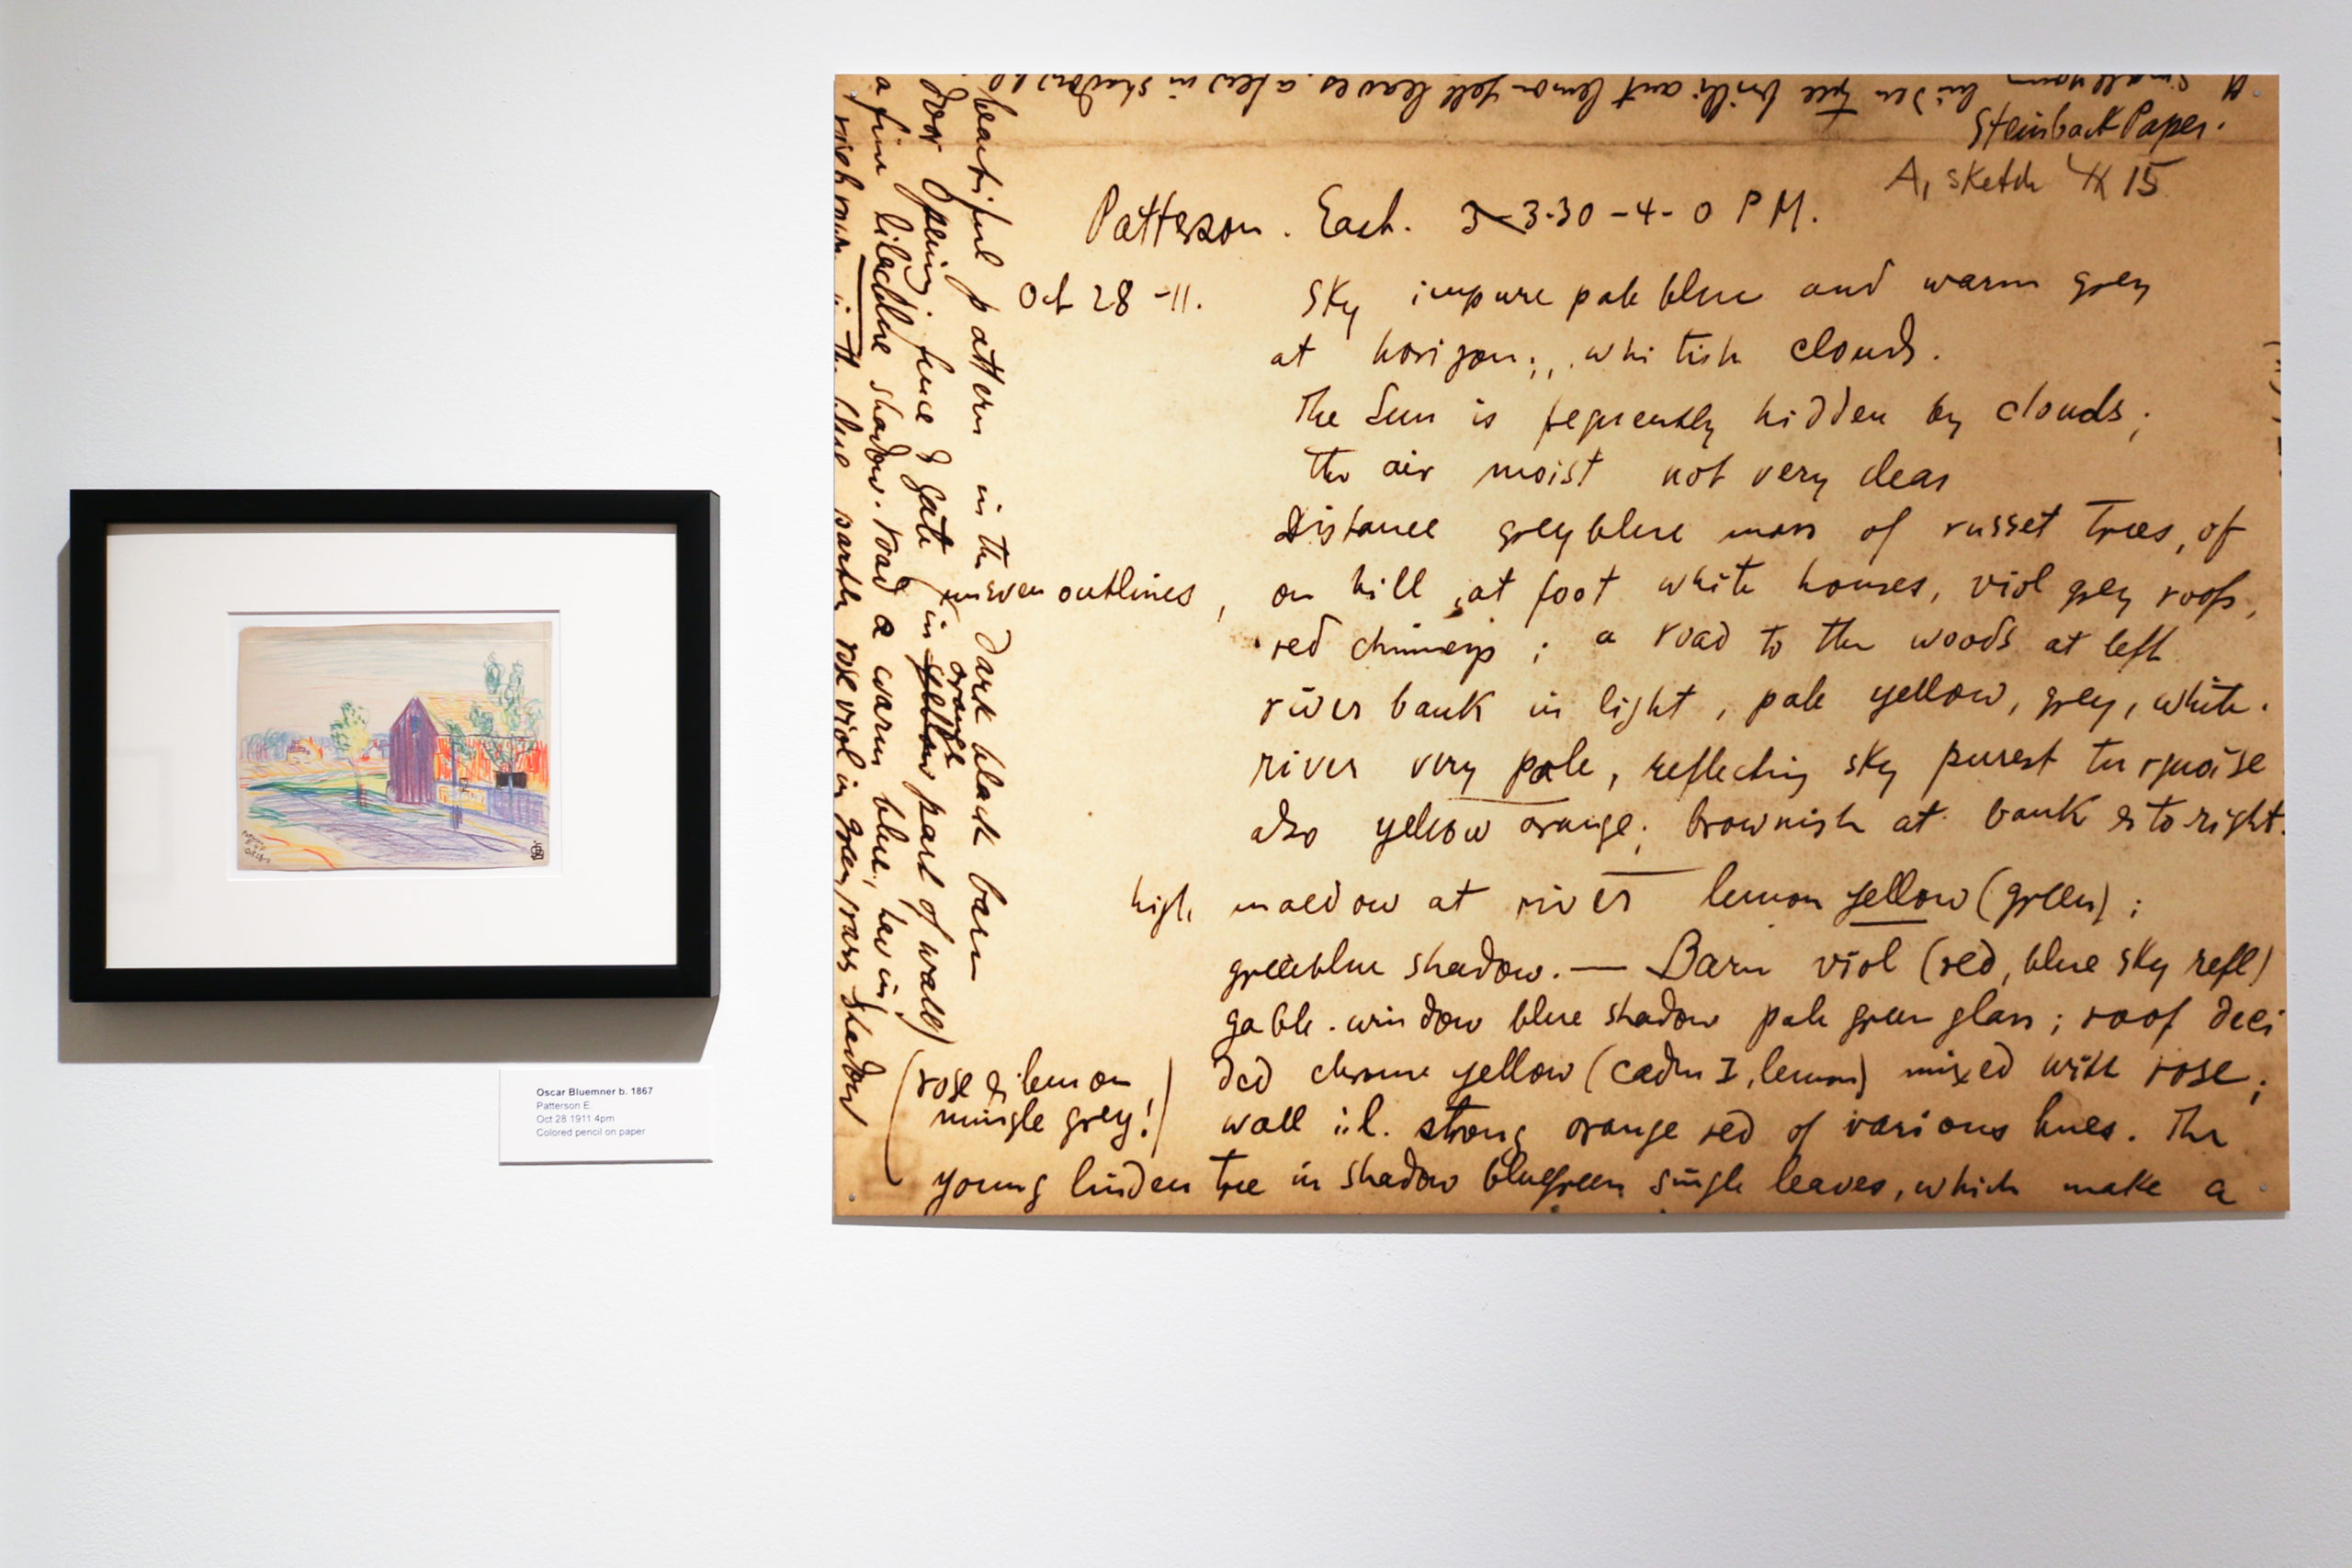 Oscar Bluemner b. 1867
Patterson E.
Oct 28 1911 4pm
Colored pencil on paper
Steinback Paper.
A, sketch # 15
Patterson. East. 3-3.30-4-0 PM.
Oct 28 -11.
Sky impure pale blue and warm grey
at horizon; whitish clouds.
The Sun is frequently hidden by clouds;
the air moist not very clear
Distance greyblue mass of russet trees, of
uneven outlines, on hill, at foot white houses, viol grey roofs,
red chimneys; a road to the woods at left
river bank in light, pale yellow, grey, white.
river very pale, reflecting sky purest turquoise
also yellow orange; brownish at bank & to right.
high maedow at river lemon yellow (green);
greenblue shadow. — Barn viol (red, blue sky refl)
gable. window blue shadow pale green glass; roof deci
ded chrome yellow (cadm I, lemon) mixed with rose;
(rose & lemon
mingle grey!)
wall i.l. strong orange red of various hues. The
young linden tree in shadow bluegreen single leaves, which make a
beautiful pattern in the dark black barn
door opening; fence & gate (in yellow orange part of wall)
a fine lilacblue shadow. road a warm blue, having
earth rose viol in green, grass shadow
small young linden tree brilliant lemon yell leaves, a few in shadow